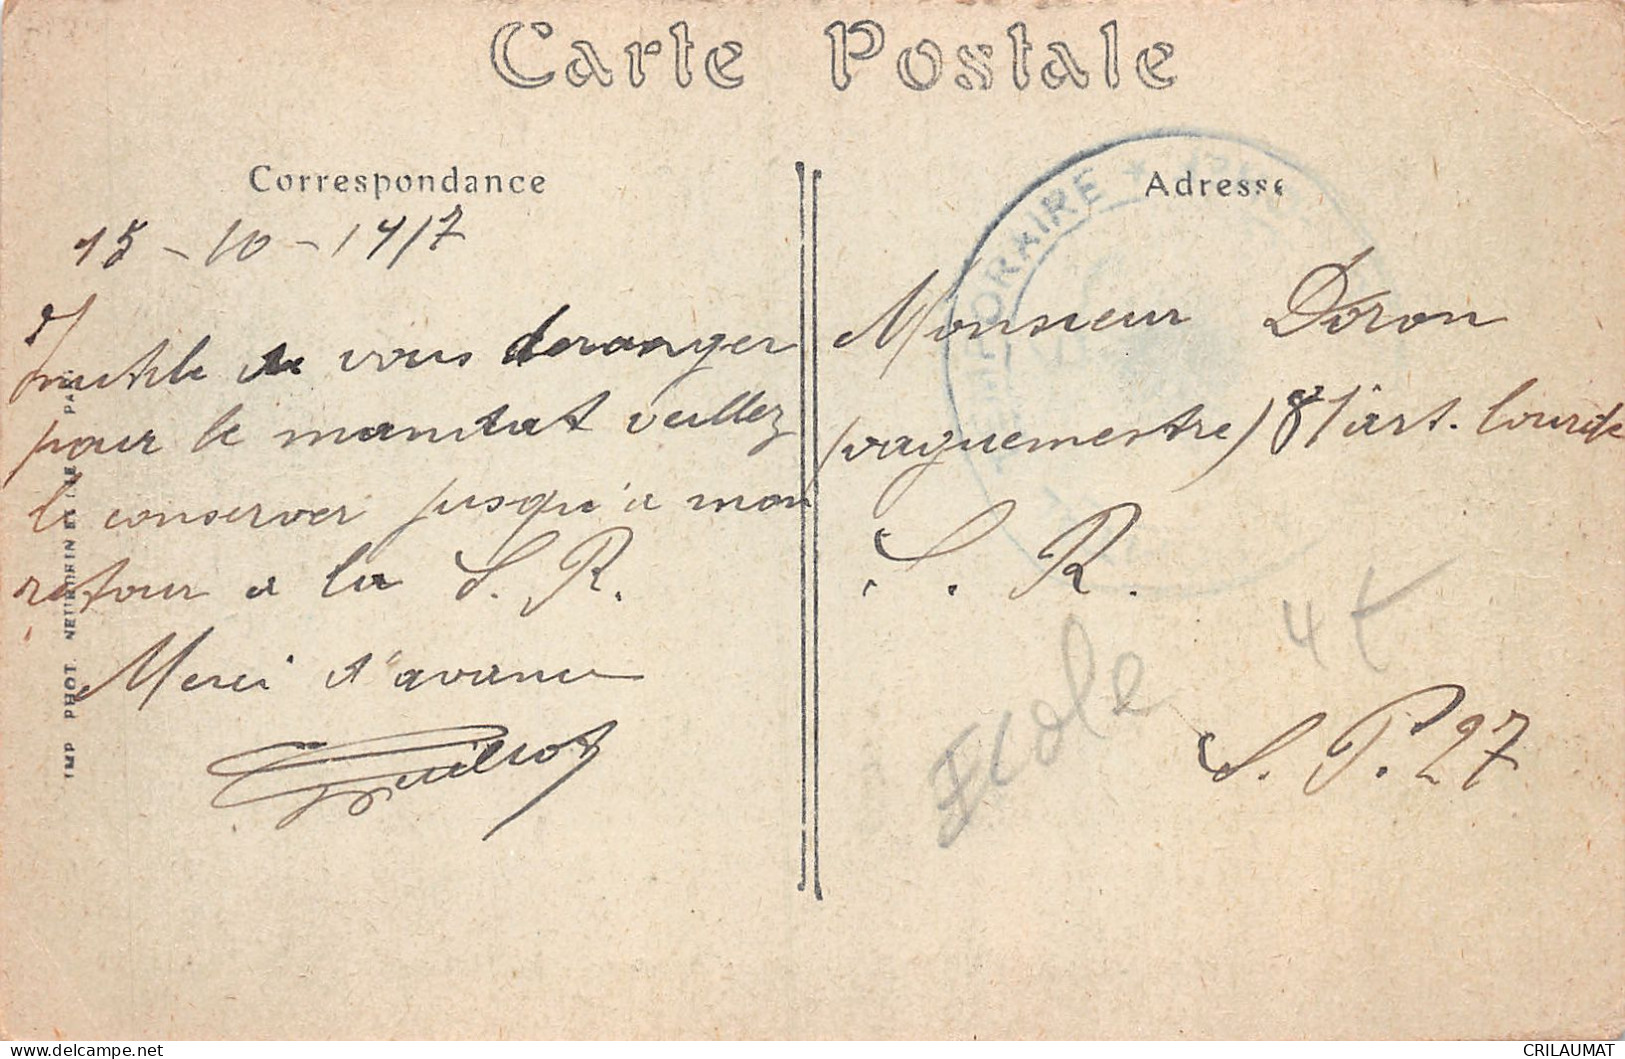 Carte Postale
Correspondance
15 - 10 - 1917
Inutile de vous deranger
pour le mandat veuillez
le conserver jusqu'à mon
retour a la S. R.
Merci d'avance
Guilliot
IMP PHOT. NEURDEIN ET CIE PARIS
Adresse
Monsieur Doron
vaguemestre) 81 art. lourde
S. R.
S. P. 27
Ecole 4t
ORAIRE *
CRILAUMAT